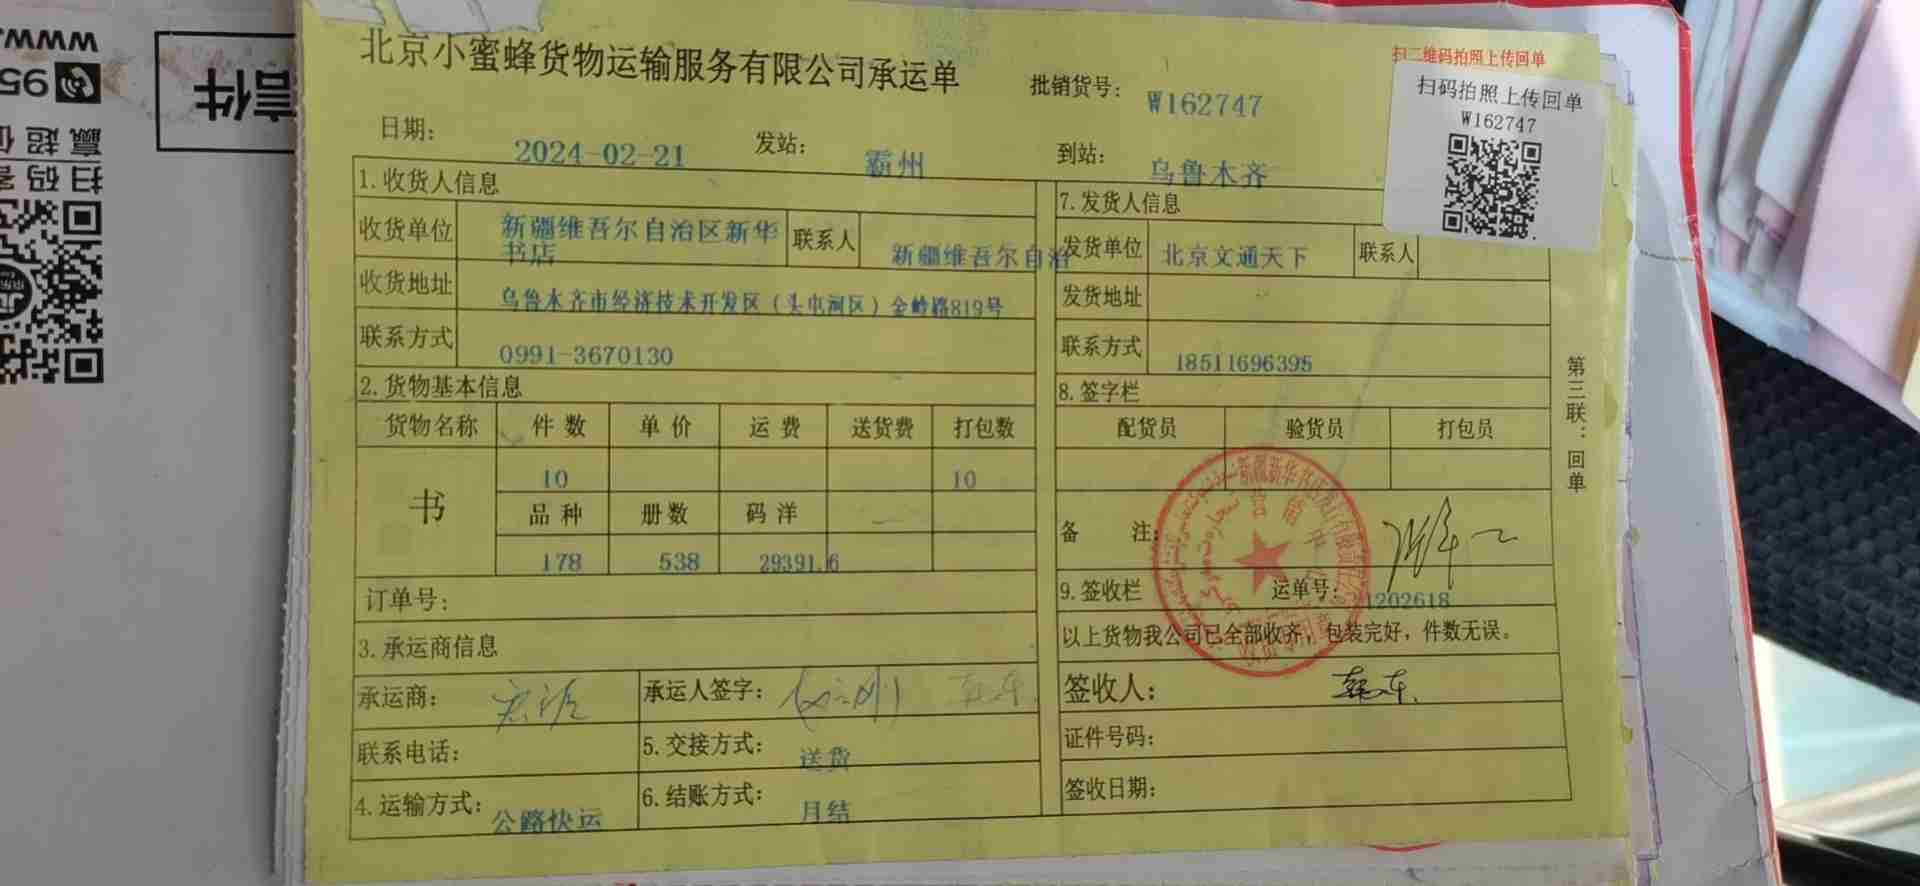 北京小蜜蜂货物运输服务有限公司承运单
批销货号: W162747
扫二维码拍照上传回单
扫码拍照上传回单
W162747
日期: 2024-02-21 发站: 霸州 到站: 乌鲁木齐
1.收货人信息
收货单位 新疆维吾尔自治区新华书店 联系人 新疆维吾尔自治
收货地址 乌鲁木齐市经济技术开发区(头屯河区)金岭路819号
联系方式 0991-3670130
2.货物基本信息
货物名称 件数 单价 运费 送货费 打包数
书 10 10
品种 册数 码洋
178 538 29391.6
订单号:
3.承运商信息
承运商: 承运人签字:
联系电话: 5.交接方式: 送货
4.运输方式: 公路快运 6.结账方式: 月结
7.发货人信息
发货单位 北京文通天下 联系人
发货地址
联系方式 18511696395
8.签字栏
配货员 验货员 打包员
备注:
9.签收栏 运单号: 1202618
以上货物我公司已全部收齐,包装完好,件数无误。
签收人:
证件号码:
签收日期:
第三联:回单
信件
WWW
95
扫码